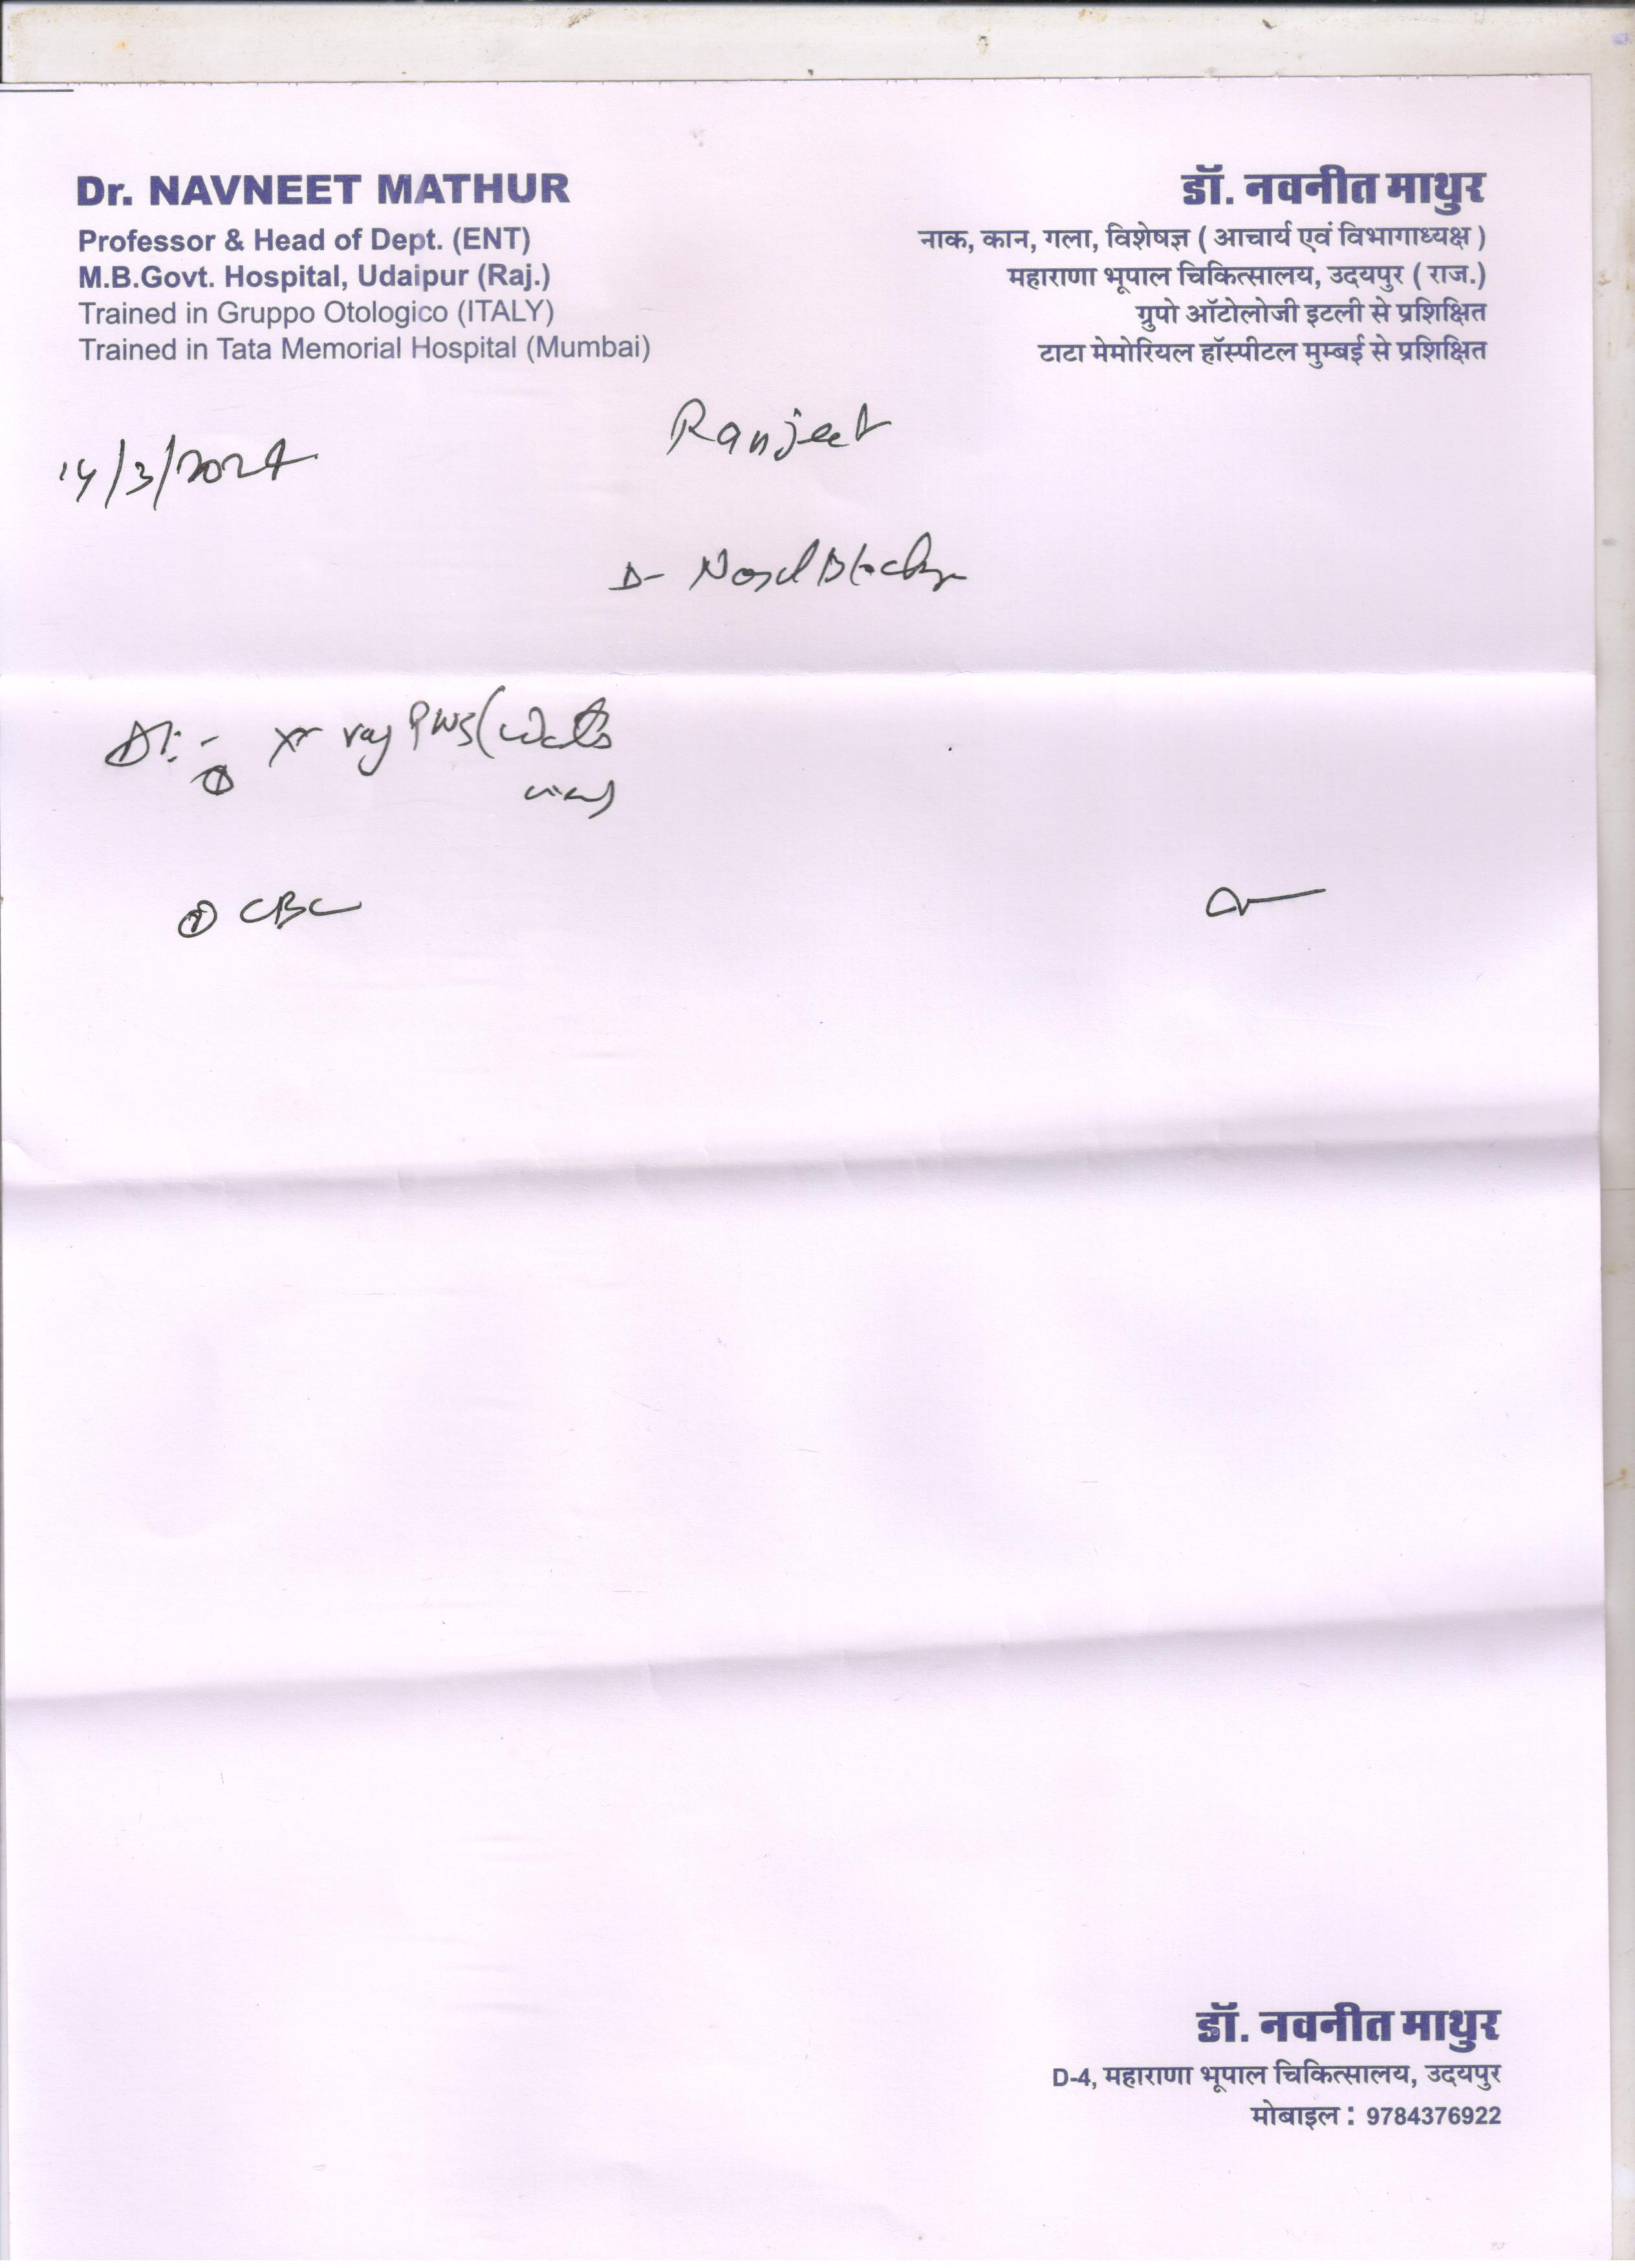 Dr. NAVNEET MATHUR
Professor & Head of Dept. (ENT)
M.B.Govt. Hospital, Udaipur (Raj.)
Trained in Gruppo Otologico (ITALY)
Trained in Tata Memorial Hospital (Mumbai)
डॉ. नवनीत माथुर
नाक, कान, गला, विशेषज्ञ ( आचार्य एवं विभागाध्यक्ष )
महाराणा भूपाल चिकित्सालय, उदयपुर ( राज.)
ग्रुपो ऑटोलोजी इटली से प्रशिक्षित
टाटा मेमोरियल हॉस्पीटल मुम्बई से प्रशिक्षित
Ranjeet
14/3/2024
Nasal Blockage
X-ray PNS (Waters
view)
CBC
डॉ. नवनीत माथुर
D-4, महाराणा भूपाल चिकित्सालय, उदयपुर
मोबाइल : 9784376922